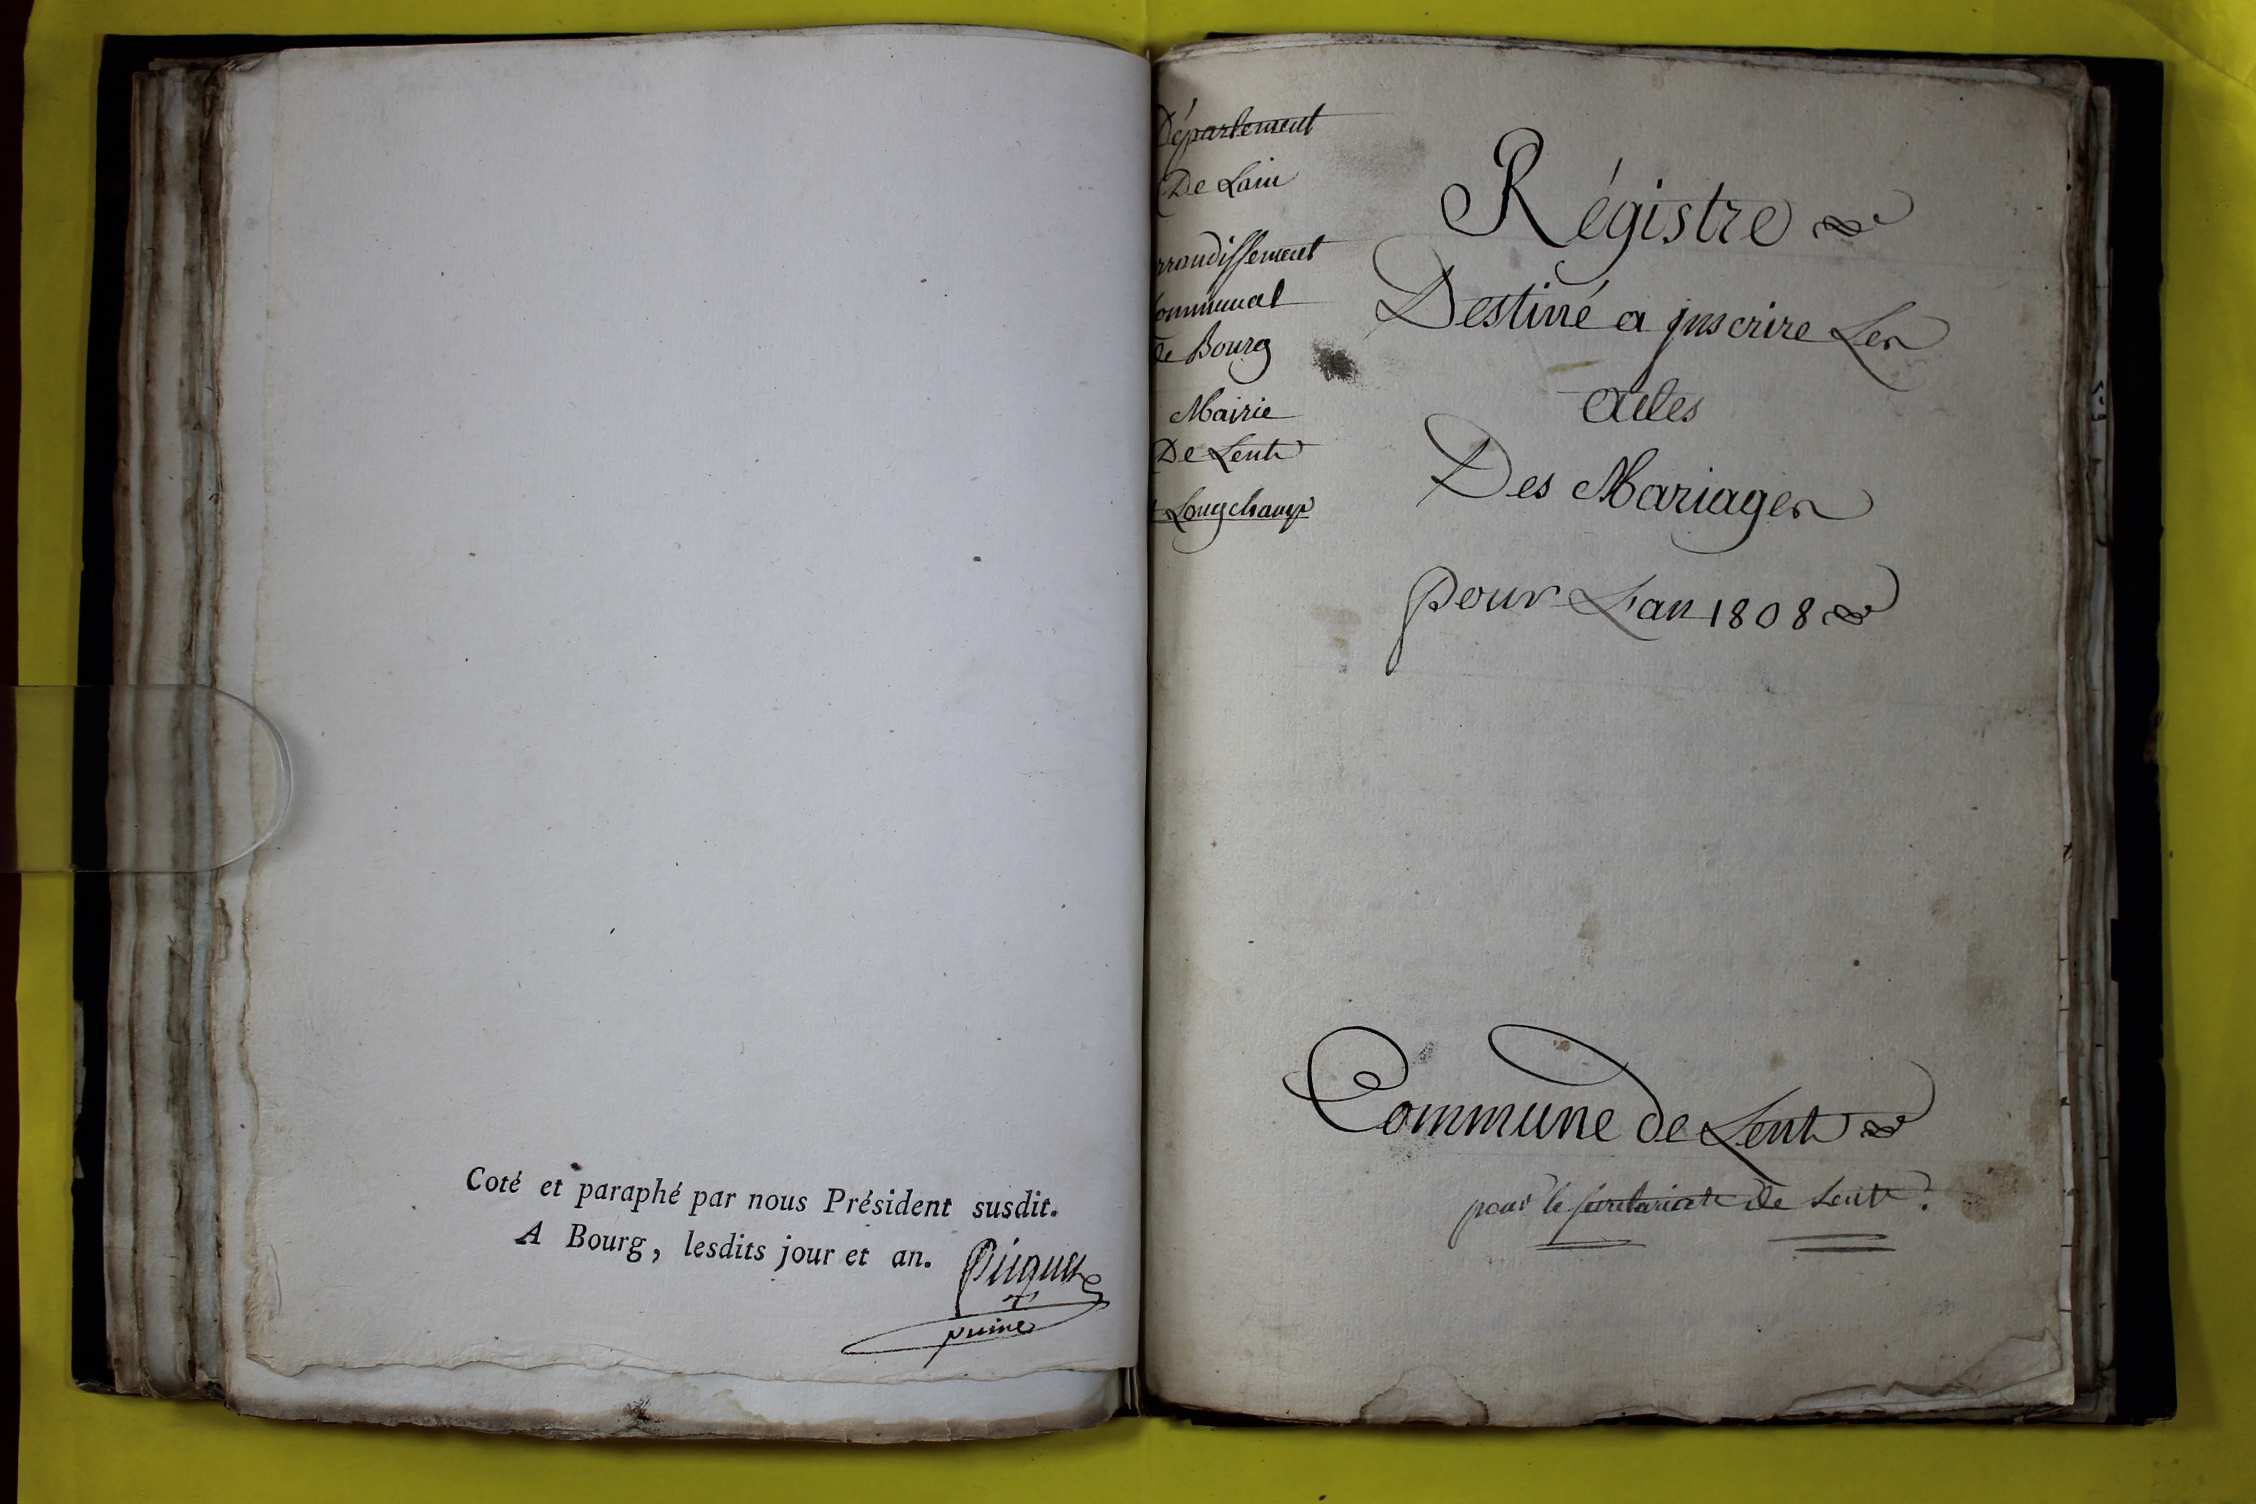 Coté et paraphé par nous Président susdit.
A Bourg, lesdits jour et an.
Picquet
puiné
Département
De Lain
rrondissement
ommunal
de Bourg
Mairie
De Lent
Longchamp
Régistre
Destiné a inscrire Les
actes
Des Mariages
pour L'an 1808
Commune de Lent
pour le secretariat de Lent.